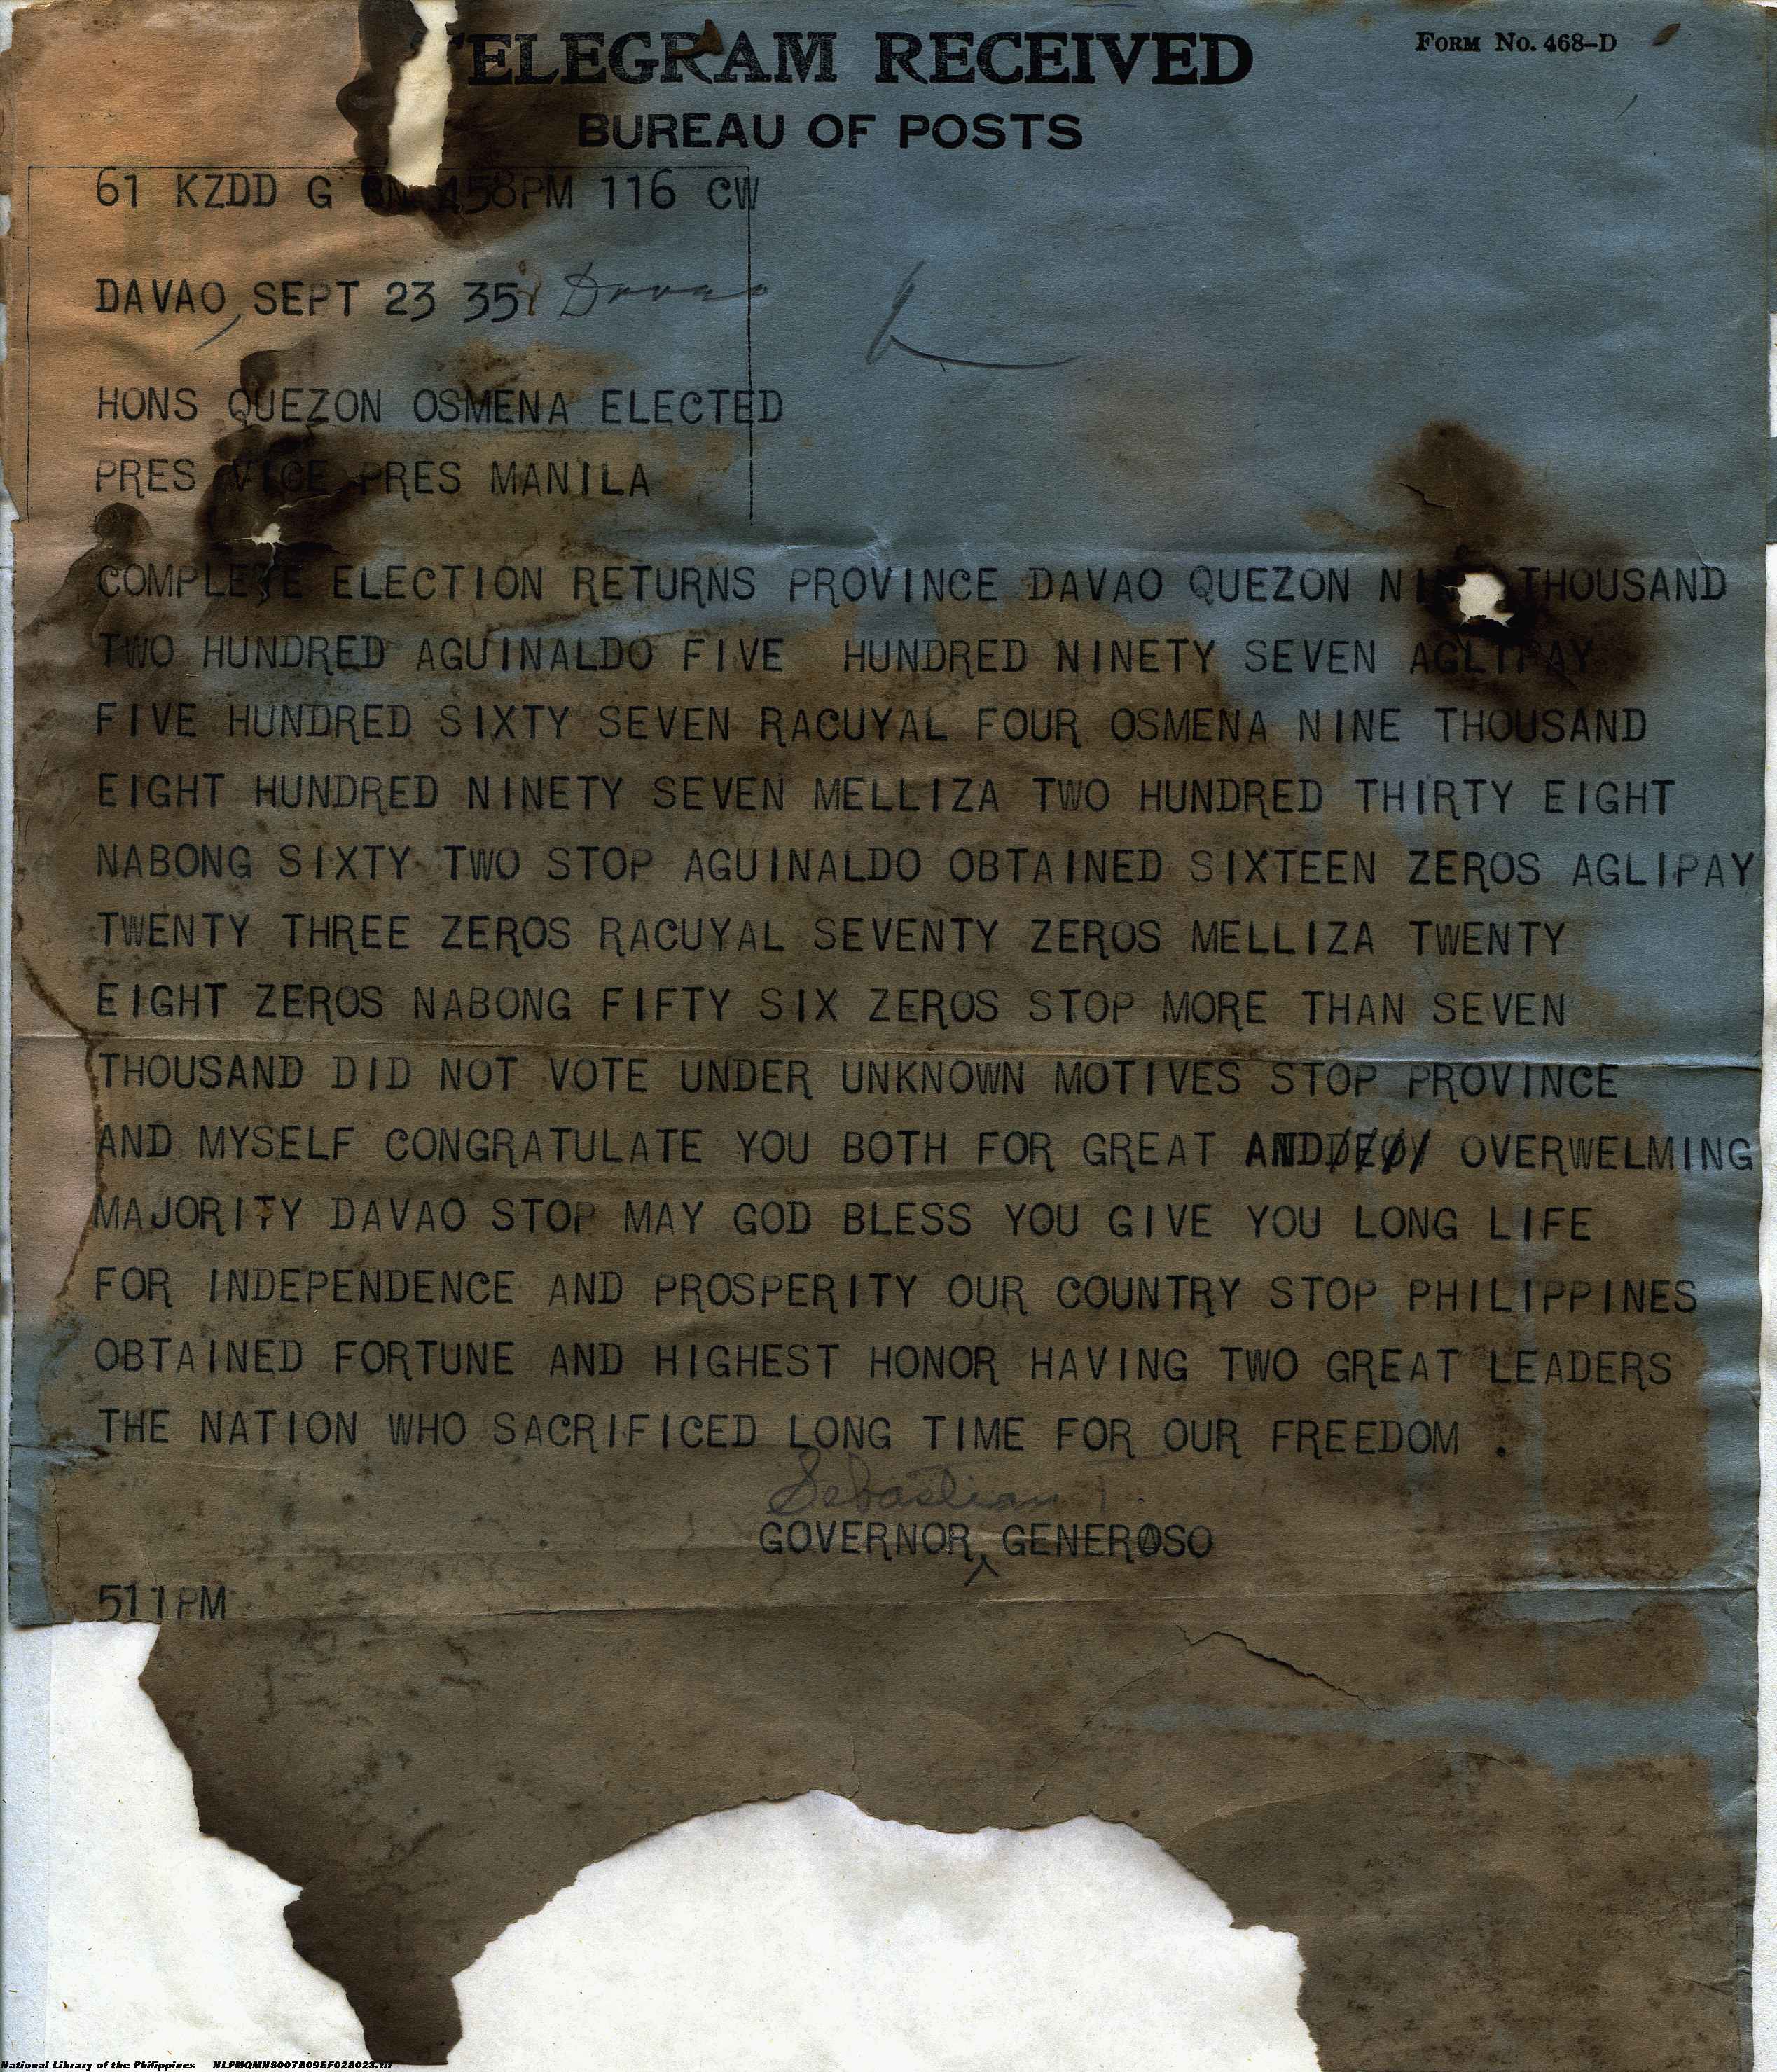 TELEGRAM RECEIVED
FORM No. 468-D
BUREAU OF POSTS
61 KZDD G 458PM 116 CW
DAVAO, SEPT 23 35 Davao
HONS QUEZON OSMENA ELECTED
PRES VICE PRES MANILA
COMPLETE ELECTION RETURNS PROVINCE DAVAO QUEZON THOUSAND
TWO HUNDRED AGUINALDO FIVE HUNDRED NINETY SEVEN AGLIPAY
FIVE HUNDRED SIXTY SEVEN RACUYAL FOUR OSMENA NINE THOUSAND
EIGHT HUNDRED NINETY SEVEN MELLIZA TWO HUNDRED THIRTY EIGHT
NABONG SIXTY TWO STOP AGUINALDO OBTAINED SIXTEEN ZEROS AGLIPAY
TWENTY THREE ZEROS RACUYAL SEVENTY ZEROS MELLIZA TWENTY
EIGHT ZEROS NABONG FIFTY SIX ZEROS STOP MORE THAN SEVEN
THOUSAND DID NOT VOTE UNDER UNKNOWN MOTIVES STOP PROVINCE
AND MYSELF CONGRATULATE YOU BOTH FOR GREAT AND OVERWELMING
MAJORITY DAVAO STOP MAY GOD BLESS YOU GIVE YOU LONG LIFE
FOR INDEPENDENCE AND PROSPERITY OUR COUNTRY STOP PHILIPPINES
OBTAINED FORTUNE AND HIGHEST HONOR HAVING TWO GREAT LEADERS
THE NATION WHO SACRIFICED LONG TIME FOR OUR FREEDOM .
Sebastian
GOVERNOR GENEROSO
511PM
National Library of the Philippines NLPMQMNS007B095F028023.tif